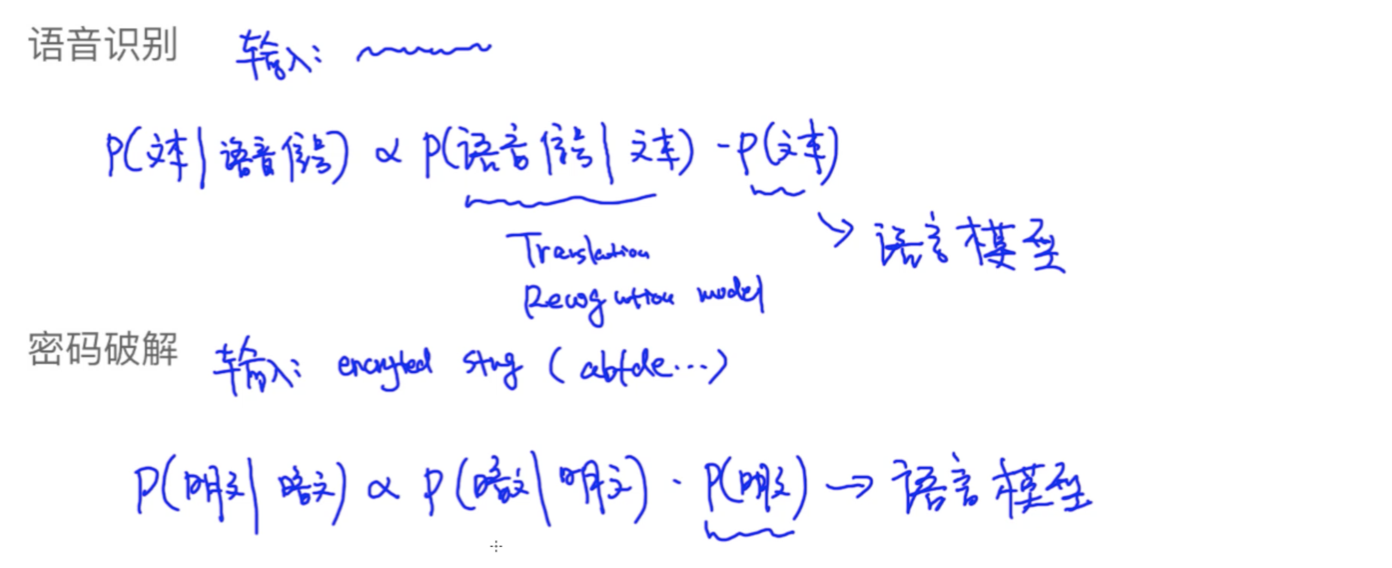 语音识别 输入:
P(文本|语音信号) ∝ P(语音信号|文本) · P(文本)
→ 语言模型
Translation
Recognition model
密码破解 输入: encrypted string (abfde...)
P(明文|暗文) ∝ P(暗文|明文) · P(明文) → 语言模型